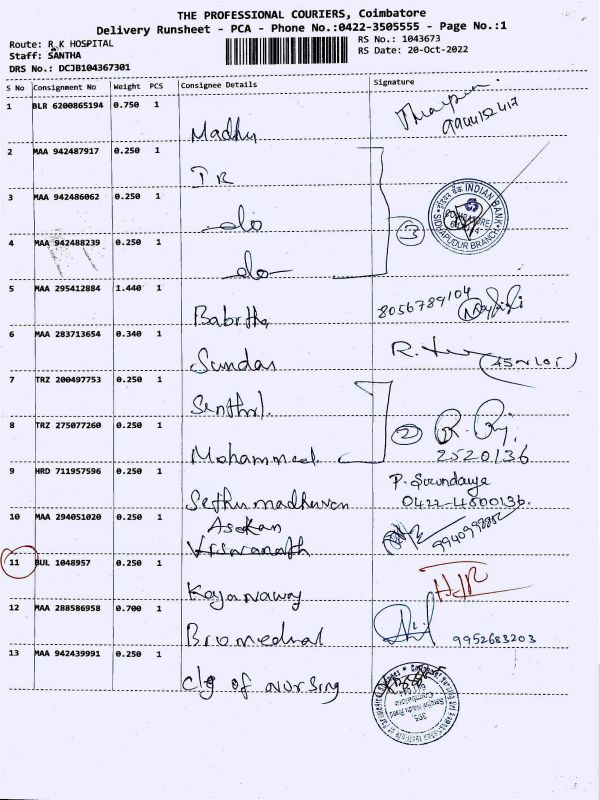 THE PROFESSIONAL COURIERS, Coimbatore
Delivery Runsheet - PCA - Phone No.:0422-3505555 - Page No.:1
Route: R K HOSPITAL
RS No.: 1043673
Staff: SANTHA
RS Date: 20-Oct-2022
DRS No.: DCJB104367301
S No Consignment No Weight PCS Consignee Details Signature
1 BLR 6200865194 0.750 1 Madhu
9944152417
2 MAA 942487917 0.250 1 I R
3 MAA 942486062 0.250 1 do
3
INDIAN BANK
SIDHAPUDUR BRANCH
4 MAA 942488239 0.250 1 do
5 MAA 295412884 1.440 1 Babitha 8056789104
6 MAA 283713654 0.340 1 Sundar
7 TRZ 200497753 0.250 1 Senthil
8 TRZ 275077260 0.250 1 Mohammed 2
2520136
9 HRD 711957596 0.250 1 Sethu madhavan
0422-4500136
10 MAA 294051020 0.250 1 Asokan
Viswanath
11 BUL 1048957 0.250 1
12 MAA 288586958 0.700 1 Biomedical 9952683203
13 MAA 942439991 0.250 1 clg of nursing
395,
Coimbatore